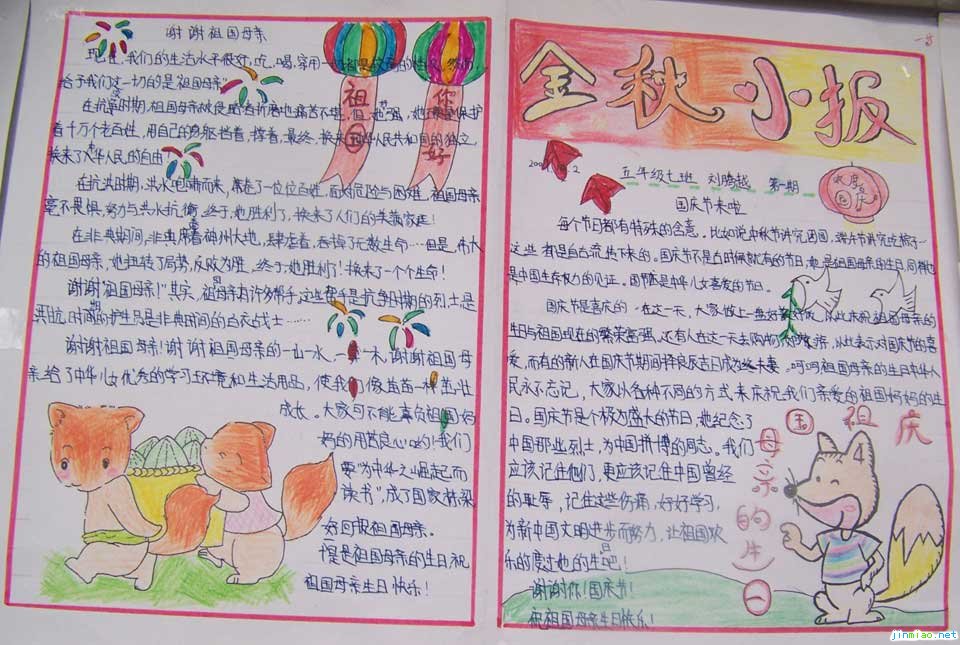 谢谢祖国母亲
现在,我们的生活水平很好,吃、喝、穿、用一
给予我们这一切的是祖国母亲。
在抗战时期,祖国母亲被侵略者折磨也痛苦不堪,但她坚强,她
着千万个老百姓,用自己的身躯挡着,撑着,最终,换来 中华人民共和国的独立,
换来了 中华人民的自由!
在抗洪时期,洪水咆哮而来,席卷了一位位百姓,面对危险与困难,祖国母亲
毫不畏惧,努力与洪水抗衡,终于,她胜利了,换来了人们的美满家庭!
在非典期间,非典席卷神州大地,肆虐着,吞掉了无数生命……但是,伟大
的祖国母亲,她扭转了局势,反败为胜,终于,她胜利了!换来了一个个生命!
谢谢祖国母亲!"其实,祖国母亲有许多帮手,这些帮手是抗争时期的烈士是
洪 时期的 是非典时间的白衣战士……
谢谢祖国母亲!谢谢祖国母亲的一山一水,一草一木,谢谢祖国母
亲给了中华儿女优秀的学习环境和生活用品,使我们像苗苗一样茁壮
成长。大家可不能辜负祖国妈
妈的用苦良心哟!我们
要"为中华之崛起而
读书",成了国家栋梁
好回报祖国母亲。
得是祖国母亲的生日,祝
祖国母亲生日快乐!
祖国
你好
金秋小报
五年级七班 刘腾越 第一期
欢度国庆
国庆节来啦
每个节日都有特殊的含意。比如说中秋节讲究团圆,端午节讲究吃粽子
这些都是自古流传下来的。国庆节不是古时候就有的节日,她是祖国母亲的生日,同样也
是中国生存权力的见证。国庆是中华儿女喜爱的节日。
国庆节是喜庆的,在这一天,大家 上一盘好 以此来祝祖国母亲的
生日与祖国现在的繁荣富强,还有人在这一天去购物 以此表示对国庆节的喜
爱,而有的新人在国庆节期间择良辰吉日成为终夫妻。呵呵祖国母亲的生日中华人
民永不忘记,大家以各种不同的方式来庆祝我们亲爱的祖国妈妈的生
日。国庆节是个极为盛大的节日,她纪念了
中国那些烈士,为中国拼搏的同志。我们
应该记住他们,更应该记住中国曾经
的耻辱,记住这些伤痛,好好学习,
为新中国文明进步而努力,让祖国欢
乐的度过她的生日吧!
谢谢你!国庆节!
祝祖国母亲生日快乐!
庆祖国母亲的生日
jinmiao.net